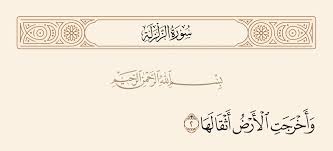 سُورَةُ الزَّلْزَلَةِ
بِسْمِ اللَّهِ الرَّحْمَٰنِ الرَّحِيمِ
وَأَخْرَجَتِ ٱلْأَرْضُ أَثْقَالَهَا ٢